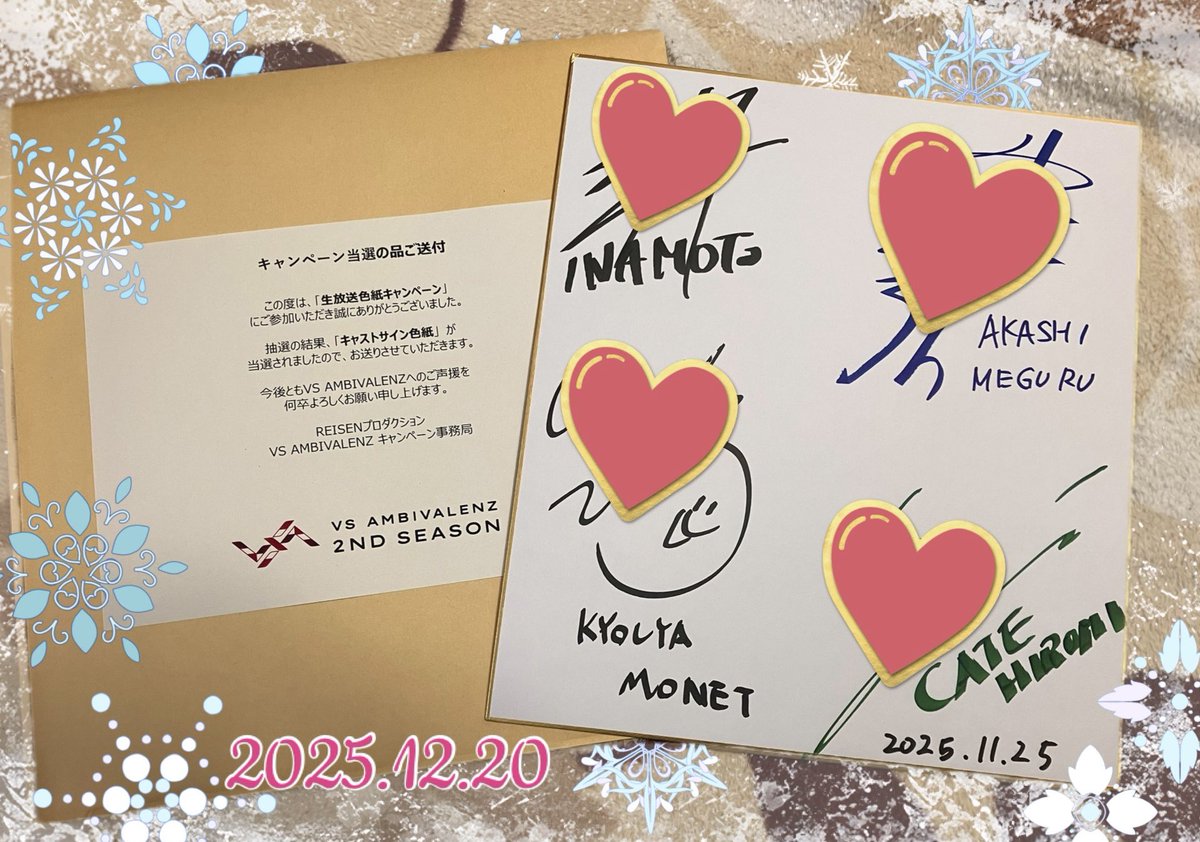 キャンペーン当選の品ご送付
この度は、「生放送色紙キャンペーン」
にご参加いただき誠にありがとうございました。
抽選の結果、「キャストサイン色紙」が
当選されましたので、お送りさせていただきます。
今後ともVS AMBIVALENZへのご声援を
何卒よろしくお願い申し上げます。
REISENプロダクション
VS AMBIVALENZ キャンペーン事務局
VS AMBIVALENZ
2ND SEASON
INAMOTO
AKASHI
MEGURU
KYOUYA
MONET
CATE
HIROMI
2025.11.25
2025.12.20